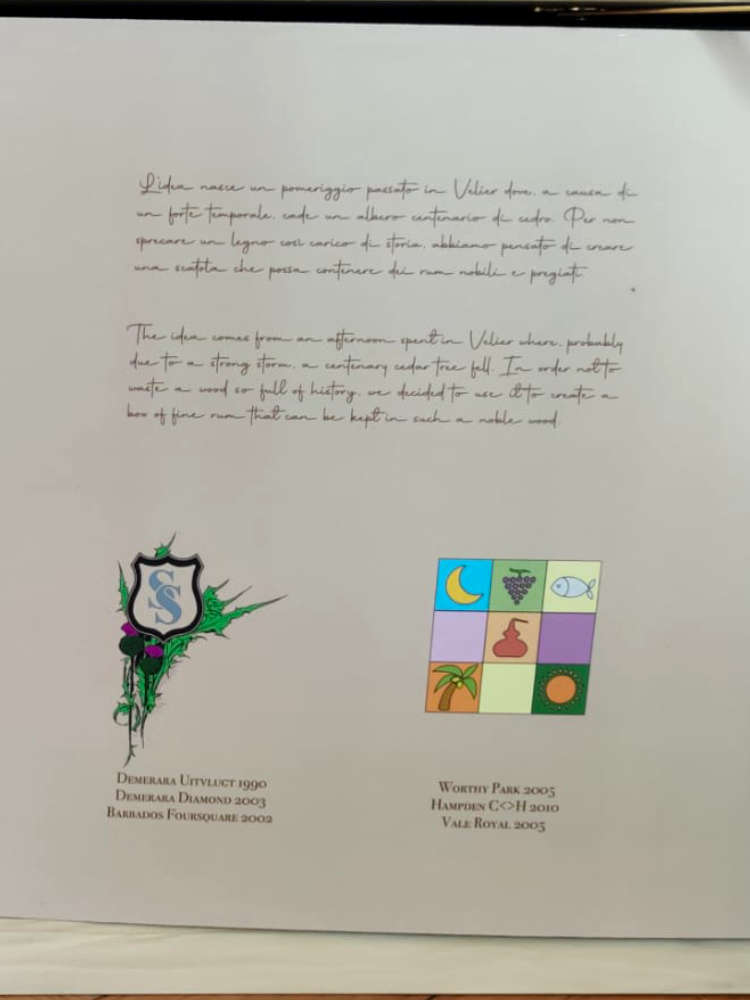 L'idea nasce un pomeriggio passato in Velier dove, a causa di
un forte temporale, cade un albero centenario di cedro. Per non
sprecare un legno così carico di storia, abbiamo pensato di creare
una scatola che possa contenere dei rum nobili e pregiati.
The idea comes from an afternoon spent in Velier where, probably
due to a strong storm, a centenary cedar tree fell. In order not to
waste a wood so full of history, we decided to use it to create a
box of fine rum that can be kept in such a noble wood.
SS
Demerara Uitvlugt 1990
Demerara Diamond 2003
Barbados Foursquare 2002
Worthy Park 2005
Hampden C<>H 2010
Vale Royal 2005